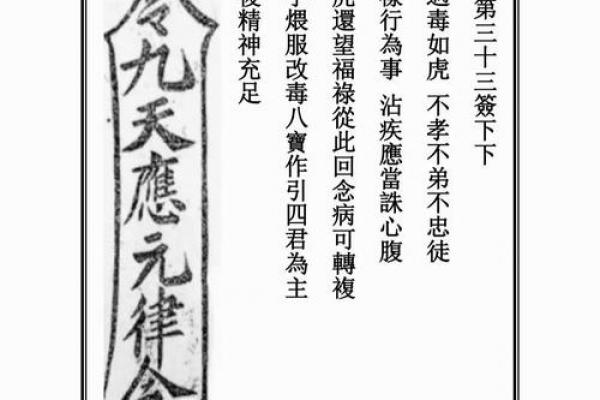 第三十三簽下下
毒如虎 不孝不弟不忠徒
行為事 沾疾應當誅心腹
還望福祿從此回念病可轉複
煨服改毒八寶作引四君為主
精神充足
令九天應元律令